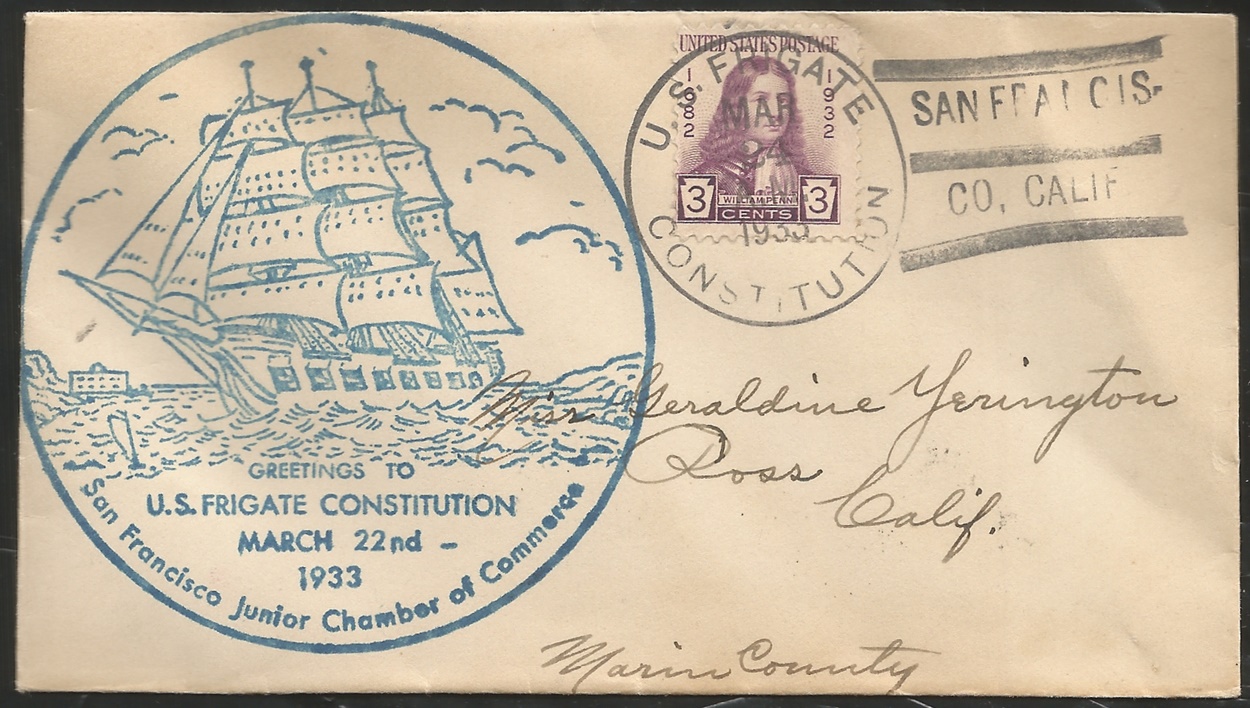 GREETINGS TO
U.S. FRIGATE CONSTITUTION
MARCH 22nd –
1933
San Francisco Junior Chamber of Commerce
UNITED STATES POSTAGE
1682
1932
WILLIAM PENN
3 CENTS 3
U.S. FRIGATE
MAR
24
1933
CONSTITUTION
SAN FRANCIS-
CO, CALIF
Miss Geraldine Yerington
Ross
Calif.
Marin County